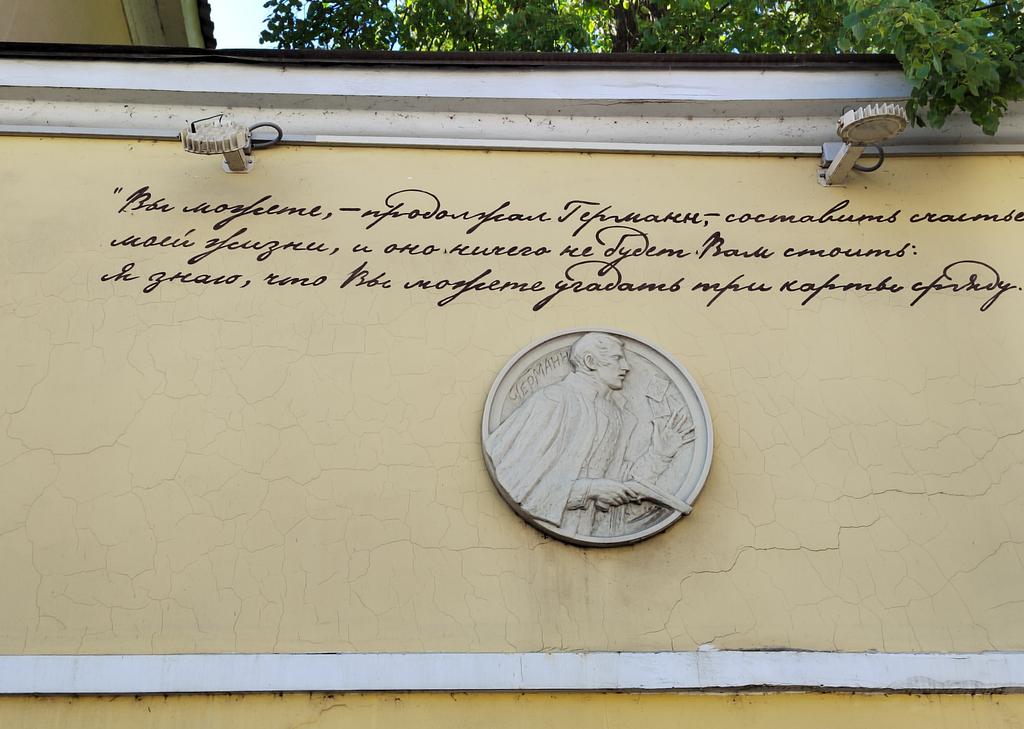 "Вы можете, – продолжал Германн, – составить счастье
моей жизни, и оно ничего не будет Вам стоить:
Я знаю, что Вы можете угадать три карты сряду.
ГЕРМАНН